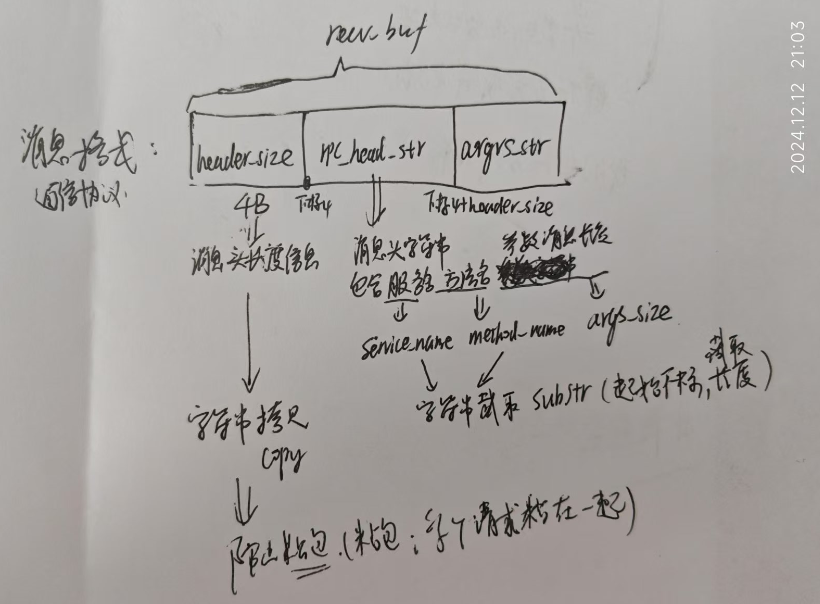 recv_buf
消息格式:
通信协议
header_size
rpc_head_str
args_str
4B
下标4
下标4+header_size
消息头长度信息
消息头字符串
包含服务名 方法名
参数消息长度
service_name
method_name
args_size
字符串截取 substr (起始下标, 截取长度)
字符串拷贝
copy
防止粘包.(粘包:多个请求粘在一起)
2024.12.12 21:03